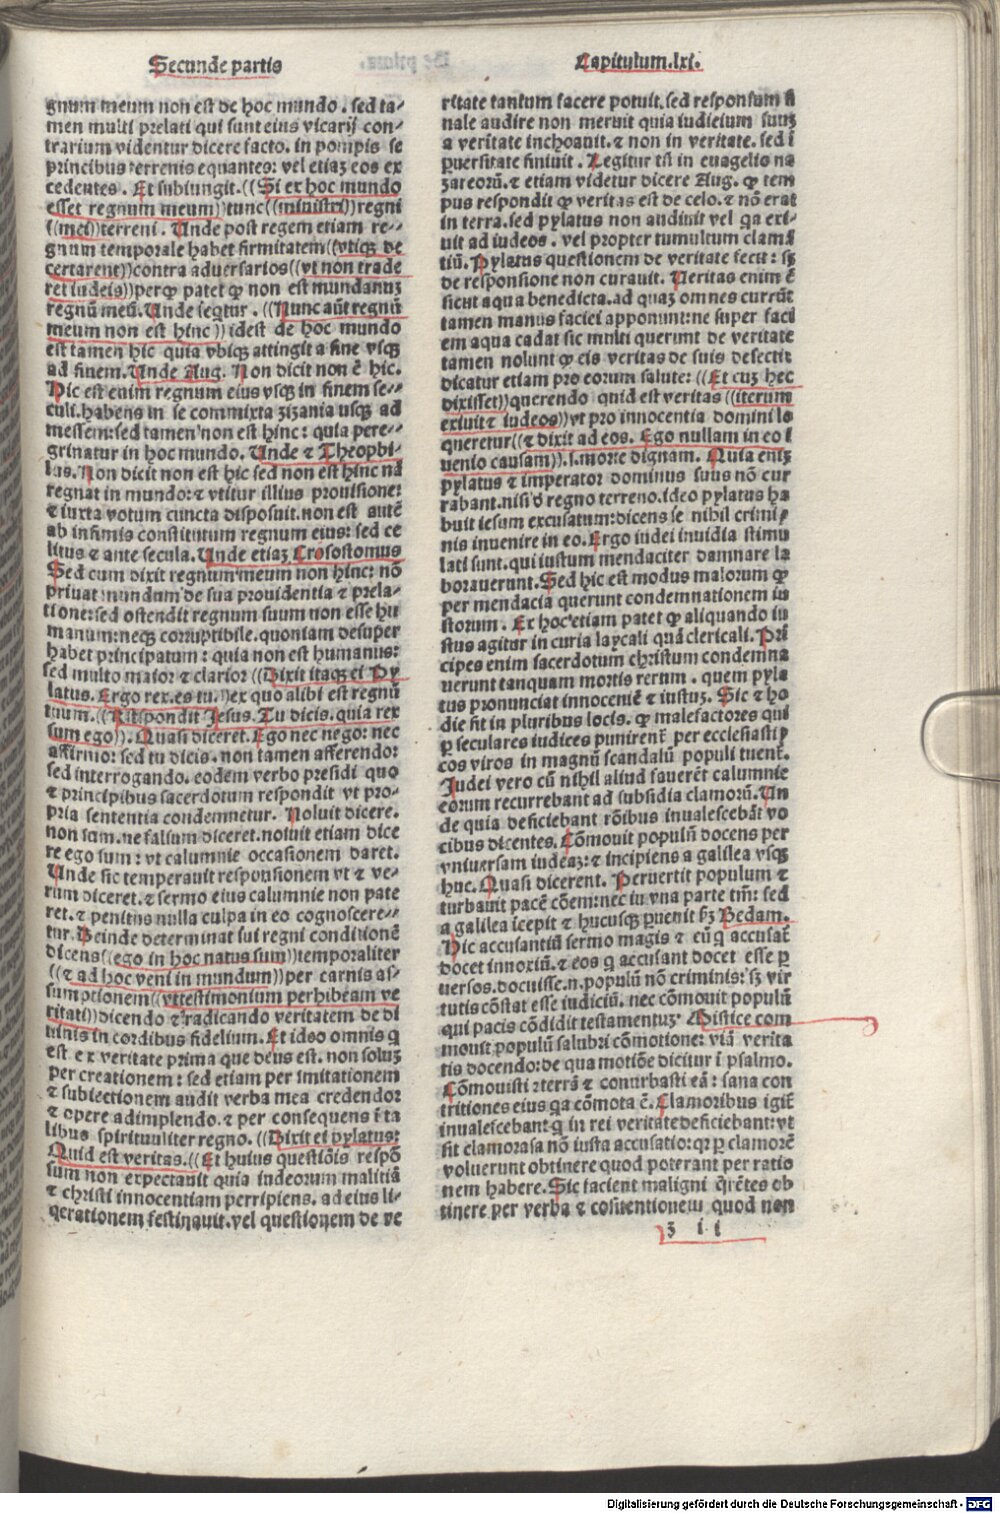 Secunde partis
Capitulum.lxi.
gnum meum non est de hoc mundo . sed ta⸗
men multi prelati qui sunt eius vicarij con⸗
trarium videntur dicere facto. in pompis se
principibus terrenis equantes: vel etiaꝫ eos ex
cedentes . Et subiungit.((Si ex hoc mundo
esset regnum meum))tunc((ministri))regni
((mei))terreni . Unde post regem etiam re⸗
gnum temporale habet firmitatem((vtiqꝫ de
certarent))contra aduersarios((vt non trade
ret iudeis))per qḋ patet ꝙ non est mundanuꝫ
regnū meū.Unde seqtur . ((Nunc aūt regnū
meum non est hinc))idest de hoc mundo
est tamen hic quia vbiqꝫ attingit a fine vsqꝫ
ad finem.Unde Aug. Non dicit non ē hic.
Hic est enim regnum eius vsqꝫ in finem se⸗
culi.habens in se commixta zizania usqꝫ ad
messem:sed tamen non est hinc: quia pere⸗
grinatur in hoc mundo. Unde ⁊ Theophi⸗
lus. Non dicit non est hic sed non est hinc nā
regnat in mundo:⁊ vtitur illius prouisione:
⁊ iuxta votum cuncta disposuit.non est autē
ab infimis constitutum regnum eius: sed ce
litus ⁊ ante secula. Unde etiaꝫ Crosostomus
Sed cum dixit regnum meum non hinc: nō
priuat mundum de sua prouidentia ⁊ prela⸗
tione:sed ostendit regnum suum non esse hu
manum:necqꝫ corruptibile.quoniam desuper
habet principatum : quia non est humanus:
sed multo maior ⁊ clarior ((Dixit itaqꝫ ei Py
latus. Ergo rex.es tu.))ex quo alibi est regnū
tuum.((Respondit Jesus. Tu dicis.quia rex
sum ego)). Quasi diceret. Ego nec nego: nec
affirmo: sed tu dicis . non tamen afferendo:
sed interrogando. eodem verbo presidi quo
⁊ principibus sacerdotum respondit vt pro⸗
pria sententia condemnetur. Noluit dicere.
non sum.ne falsum diceret.noluit etiam dice
re ego sum: vt calumnie occasionem daret.
Unde sic temperauit responsionem vt ⁊ ve⸗
rum diceret.⁊ sermo eius calumnie non pate
ret.⁊ penitus nulla culpa in eo cognoscere⸗
tur.Deinde determinat sui regni conditionē
dicens((ego in hoc natus sum))temporaliter
((⁊ ad hoc veni in mundum))per carnis as⸗
sumptionem((vt testimonium perhibeam ve
ritati))dicendo ⁊ radicando veritatem de di
uinis in cordibus fidelium. Et ideo omnis q̄
est ex veritate prima que deus est. non soluꝫ
per creationem : sed etiam per imitationem
⁊ subiectionem audit verba mea credendo:
⁊ opere adimplendo.⁊ per consequens ī ta
libus spiritualiter regno. ((Dixit ei pylatus:
Quid est veritas.((Et huius questiōis respō
sum non expectauit quia iudeorum malitiā
⁊ christi innocentiam perripiens. ad eius li⸗
gerationem festinauit.vel questionem de ve
ritate tantum facere potuit.sed responsum fi
nale audire non meruit quia iudicium suuꝫ
a veritate inchoauit.⁊ non in veritate. sed ī
puersitate finiuit . Legitur tn̄ in euagelio na
zareorū.⁊ etiam videtur dicere Aug. ꝙ tem
pus respondit ꝙ veritas est de celo.⁊ nō erat
in terra.sed pylatus non audiuit vel qa exi⸗
uit ad iudeos . vel propter tumultum claman
tiū.Pylatus questionem de veritate fecit: sꝫ
de responsione non curauit. Veritas enim ē
sicut aqua benedicta.ad quaꝫ omnes currūt
tamen manus faciei apponunt:ne super faci
em aqua cadat sic multi querunt de veritate
tamen nolunt ꝙ eis veritas de suis defectib
dicatur etiam pro eorum salute: ((Et cuꝫ hec
dixisset))querendo quid est veritas ((iterum
exiuit ⁊ iudeos))vt pro innocentia domini lo
queretur((⁊ dixit ad eos. Ego nullam in eo i
uenio causam)).i.morte dignam. Quia eniꝫ
pylatus ⁊ imperator dominus suus nō cur
rabant.nisi ḋ regno terreno.ideo pylatus ha
buit iesum excusatum:dicens se nihil crimi⸗
nis inuenire in eo.Ergo iudei inuidia stimu
lati sunt.qui iustum mendaciter damnare la
borauerunt.Sed hic est modus malorum ꝙ
per mendacia querunt condemnationem iu
storum . Ex hoc etiam patet ꝙ aliquando iu
stus agitur in curia laycali quā clericali. Prī
cipes enim sacerdotum christum condemna
uerunt tanquam mortis rerum . quem pyla
tus pronunciat innocentē ⁊ iustuꝫ. Sic ⁊ ho
die fit in pluribus locis. ꝙ malefactores qui
ꝑ seculares iudices punirent̄ per ecclesiasti⸗
cos viros in magnū scandalū populi tuent̄.
Judei vero cū nihil aliud fauerēt calumnie
eorum recurrebant ad subsidia clamorū.Un
de quia deficiebant rōibus inualescebāt vo
cibus dicentes. Cōmouit populū docens per
vniuersam iudeaꝫ:⁊ incipiens a galilea vsqꝫ
huc. Quasi dicerent. Peruertit populum ⁊
turbauit pacē cōem:nec in vna parte tm̄: sed
a galilea īcepit ⁊ hucusqꝫ puenit ſꝫ Bedam.
Hic accusantiū sermo magis ⁊ eū q accusat̄
docet innoxiū.⁊ eos q accusant docet esse ꝑ
uersos.docuisse.n.populū nō criminis: sꝫ vir
tutis cōstat esse iudiciū. nec cōmouit populū
qui pacis cōdidit testamentuꝫ. Mistice com
mouit populū salubri cōmotione: viā verita
tis docendo:de qua motiōe dicitur ī psalmo.
Cōmouisti terrā ⁊ conturbasti eā : sana con
tritiones eius qa cōmota ē. Clamoribus igit̄
inualescebant q̄ in rei veritate deficiebant:vt
fit clamorosa nō iusta accusatio:qꝛ ꝑ clamorē
voluerunt obtinere quod poterant per ratio
nem habere.Sic faciunt maligni q̄rētes ob
tinere per verba ⁊ cōuentionem quod non
ʒ i i
Digitalisierung gefördert durch die Deutsche Forschungsgemeinschaft - DFG